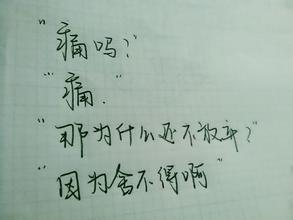 “痛吗？”
“痛．”
“那为什么还不放弃？”
“因为舍不得啊”